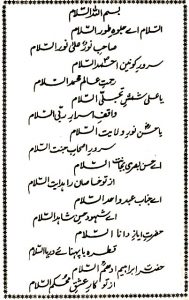 بسم اللہ السلام
السلام اے جلوۂ طور السلام
صاحبِ نورٌ علیٰ نور السلام
سرورِ کونین احمد السلام
رحمتِ عالم محمد السلام
یا علی شمسِ تجلّی السلام
واقفِ اسرارِ ربّی السلام
یا حسن نورِ ولایت السلام
سرورِ اصحابِ جنت السلام
اے حسن بصری السلام
از تو خاصانِ را ہدایت السلام
اے جنابِ عبد واحد السلام
اے شہودِ عین شاہد السلام
حضرتِ دانا السلام
قطرہ یا پہنائے دریا السلام
حضرت ابراہیم ادھم السلام
از تو کارِ عشق محکم السلام